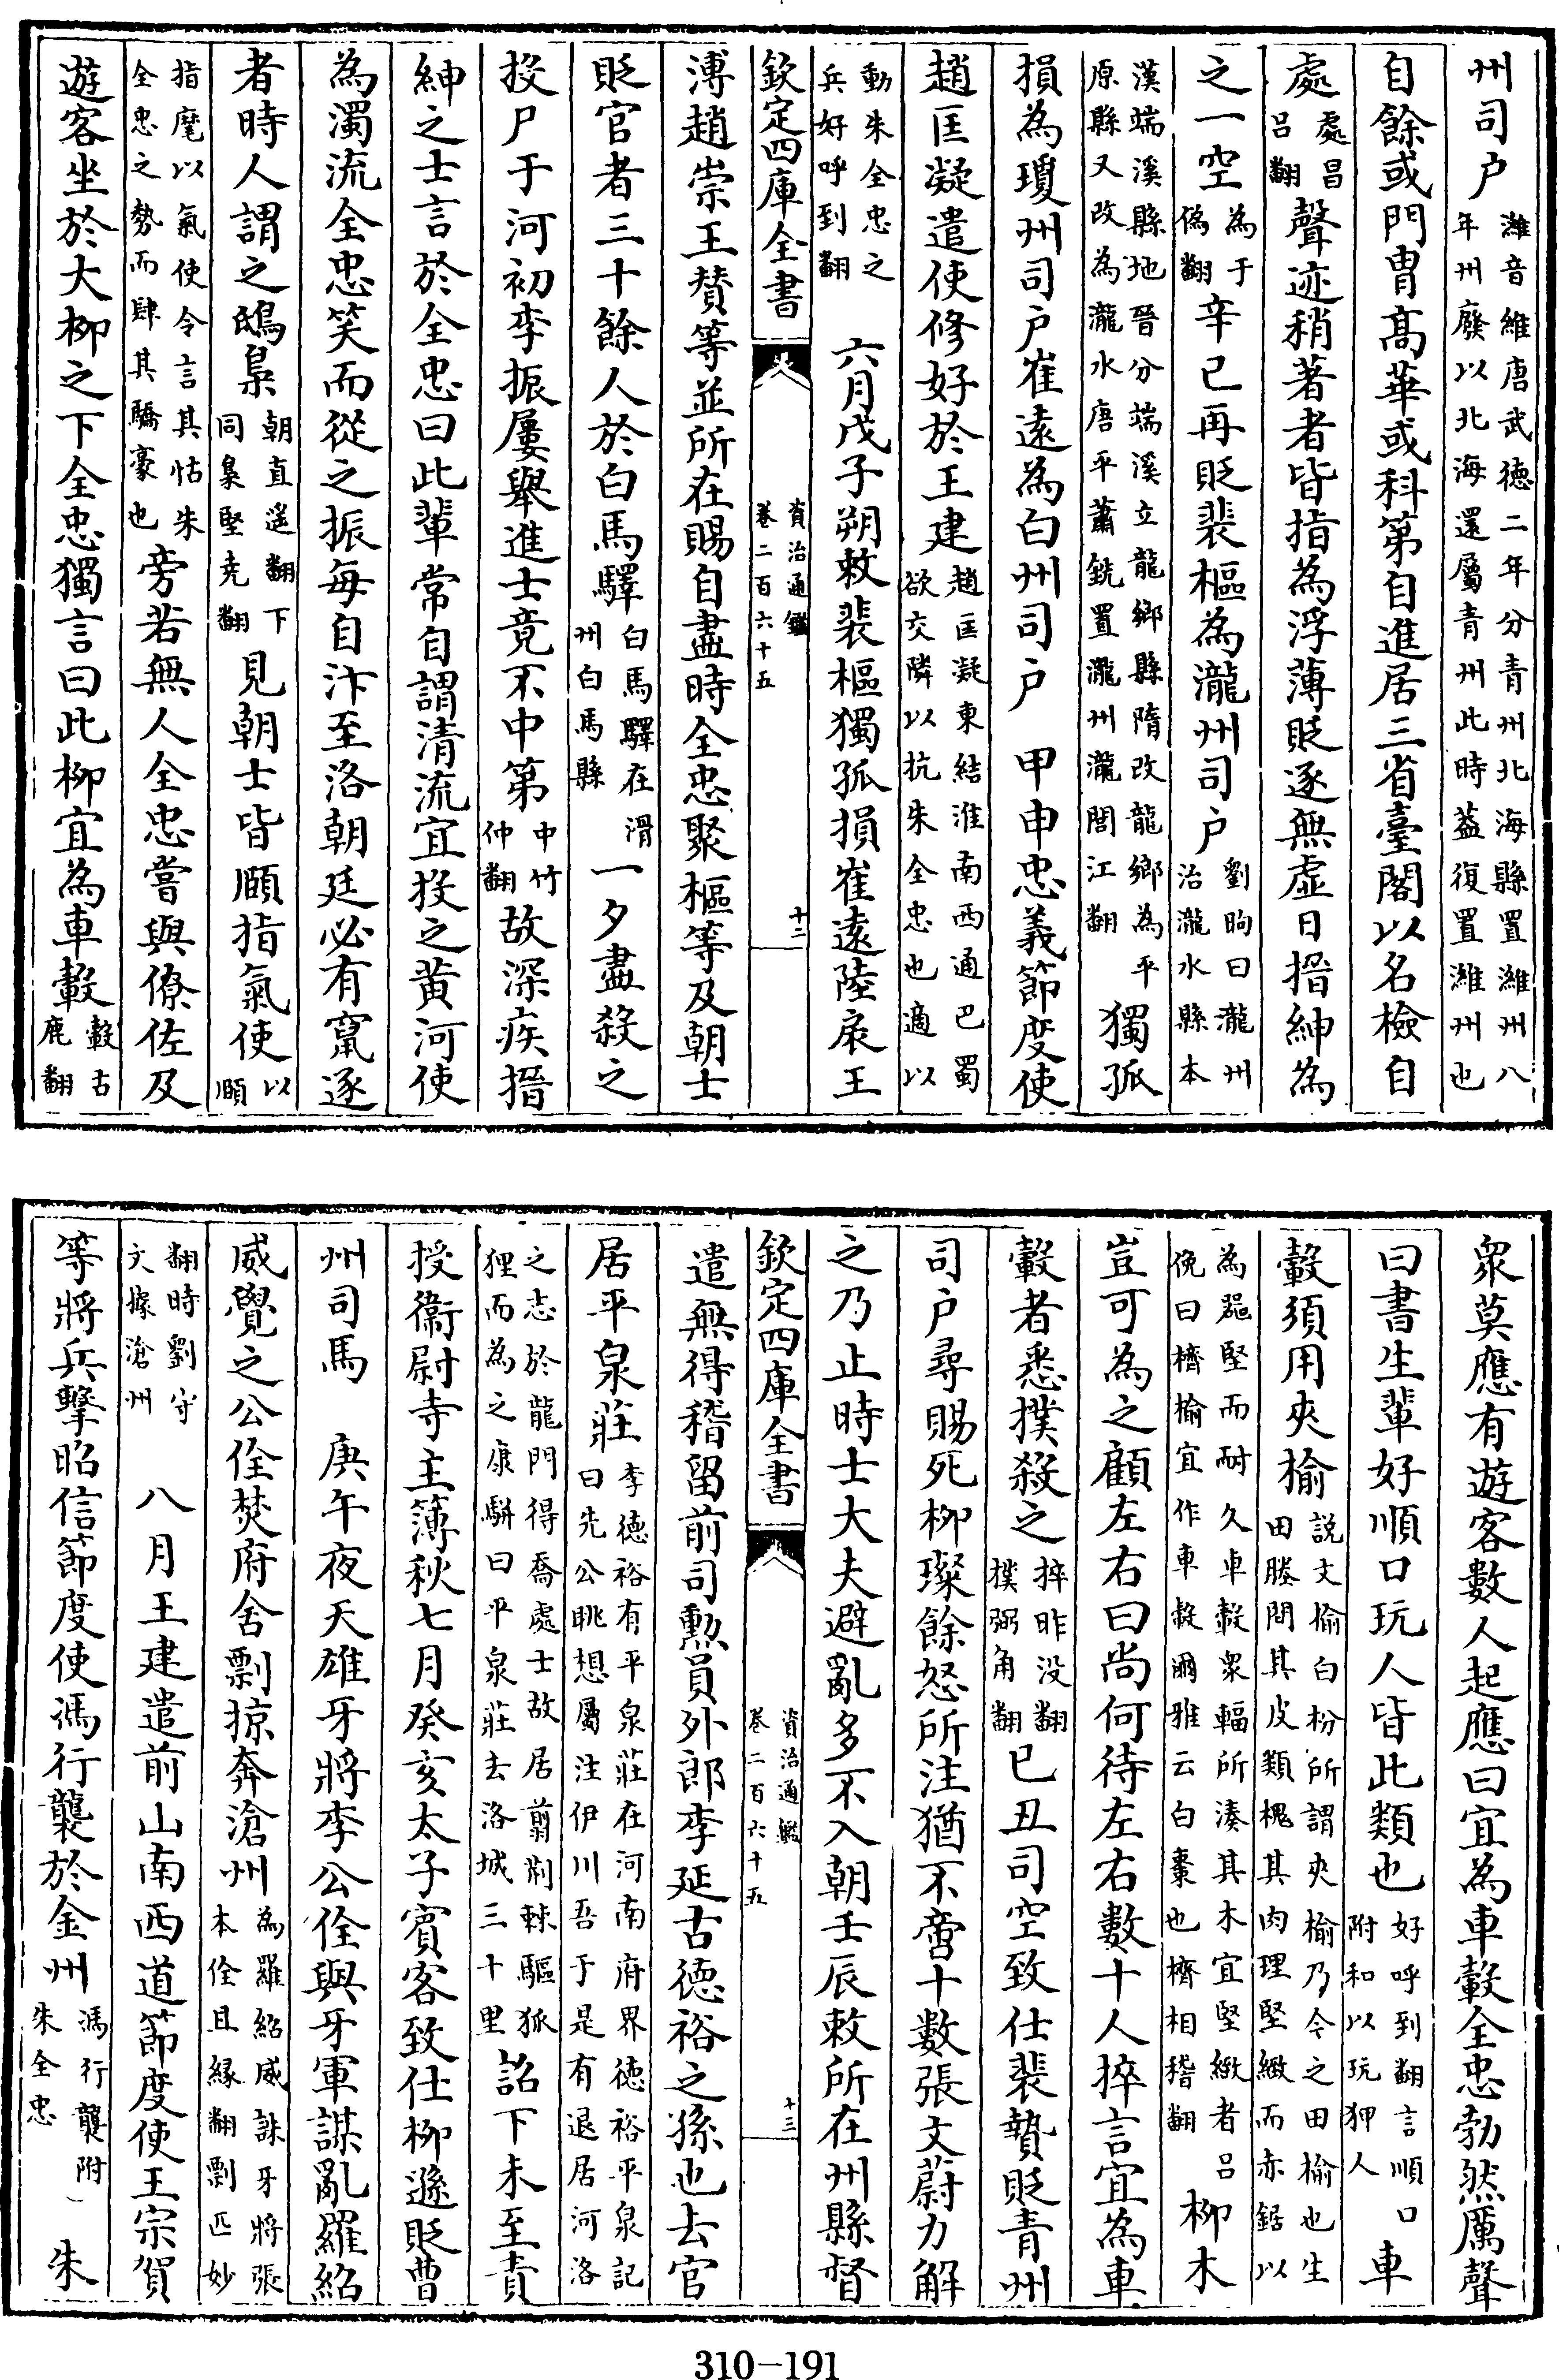 州司户濰音維唐武德二年分青州北海縣置濰州八年州廢以北海還屬青州此時葢復置濰州也
自餘或門胄髙華或科第自進居三省臺閣以名檢自
處處昌吕翻聲迹稍著者皆指為浮薄貶逐無虚日搢紳為
之一空為于偽翻辛巳再貶裴樞為瀧州司户劉昫曰瀧州治瀧水縣本
漢端溪縣地晉分端溪立龍鄉縣隋改龍鄉為平原縣又改為瀧水唐平蕭銑置瀧州瀧閭江翻獨孤
損為瓊州司户崔逺為白州司户 甲申忠義節度使
趙匡凝遣使修好於王建趙匡凝東結淮南西通巴蜀欲交隣以抗朱全忠也適以
動朱全忠之兵好呼到翻 六月戊子朔敕裴樞獨孤損崔逺陸扆王
欽定四庫全書 資治通鑑卷二百六十五 十二
溥趙崇王賛等並所在賜自盡時全忠聚樞等及朝士
貶官者三十餘人於白馬驛白馬驛在滑州白馬縣一夕盡殺之
投尸于河初李振屢舉進士竟不中第中竹仲翻故深疾搢
紳之士言於全忠曰此輩常自謂清流宜投之黄河使
為濁流全忠笑而從之振每自汴至洛朝廷必有竄逐
者時人謂之鴟梟朝直遥翻下同梟堅尭翻見朝士皆頤指氣使以頤
指麾以氣使令言其怙朱全忠之勢而肆其驕豪也旁若無人全忠嘗與僚佐及
遊客坐於大柳之下全忠獨言曰此柳宜為車轂轂古鹿翻
衆莫應有遊客數人起應曰宜為車轂全忠勃然厲聲
曰書生輩好順口玩人皆此類也好呼到翻言順口附和以玩狎人車
轂須用夾榆説文榆白枌所謂夾榆乃今之田榆也生田塍間其皮類槐其肉理堅緻而赤鋸以
為器堅而耐久車轂衆輻所湊其木宜堅緻者吕俛曰櫅榆宜作車轂爾雅云白棗也櫅相稽翻柳木
豈可為之顧左右曰尚何待左右數十人捽言宜為車
轂者悉撲殺之捽昨没翻撲弼角翻已丑司空致仕裴贄貶青州
司户尋賜死柳璨餘怒所注猶不啻十數張文蔚力解
之乃止時士大夫避亂多不入朝壬辰敕所在州縣督
欽定四庫全書 資治通鑑卷二百六十五 十三
遣無得稽留前司勲員外郎李延古德裕之孫也去官
居平泉莊李德裕有平泉莊在河南府界德裕平泉記曰先公眺想屬注伊川吾于是有退居河洛
之志於龍門得喬處士故居剪荆棘驅狐狸而為之康駢曰平泉莊去洛城三十里詔下未至責
授衞尉寺主簿秋七月癸亥太子賓客致仕柳遜貶曹
州司馬 庚午夜天雄牙將李公佺與牙軍謀亂羅紹
威覺之公佺焚府舍剽掠奔滄州為羅紹威誅牙將張本佺且縁翻剽匹妙
翻時劉守文據滄州 八月王建遣前山南西道節度使王宗賀
等將兵擊昭信節度使馮行襲於金州馮行襲附朱全忠 朱
310-191